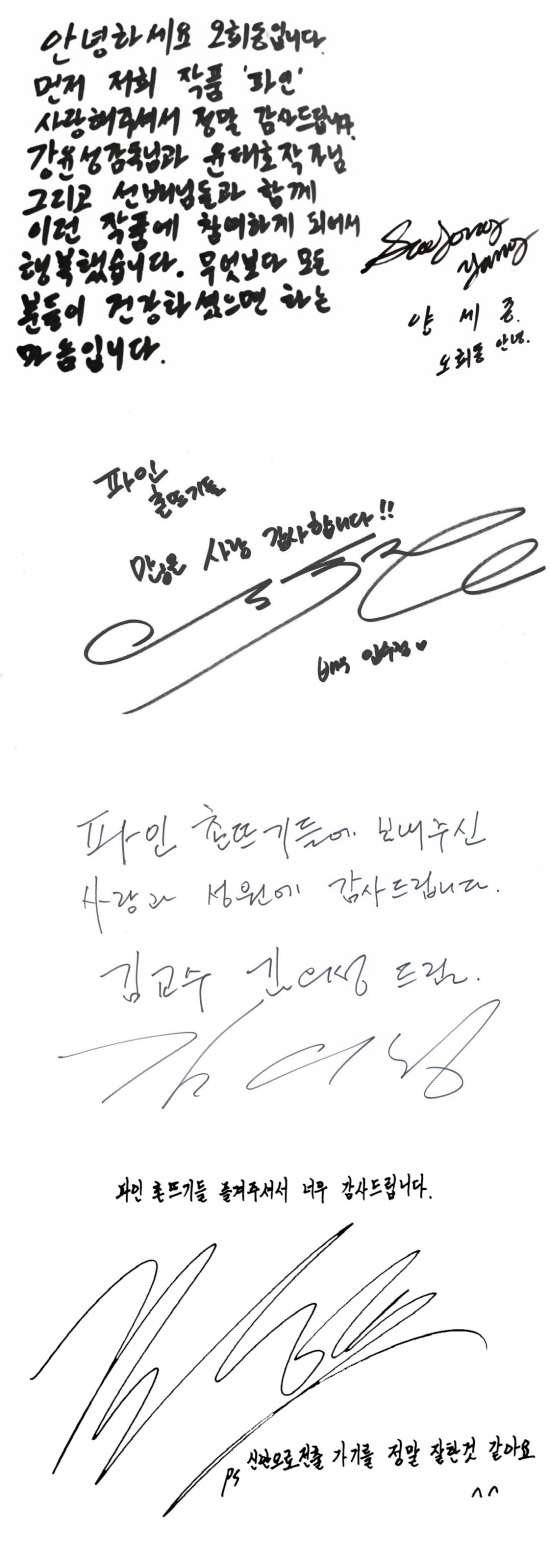 안녕하세요 오희동입니다.
먼저 저희 작품 '파인'
사랑해주셔서 정말 감사드립니다.
강윤성감독님과 윤태호작가님
그리고 선배님들과 함께
이런 작품에 참여하게 되어서
행복했습니다. 무엇보다 모든
분들이 건강하셨으면 하는
마음입니다.
SeeJong
Yang
양 세 종.
오희동 안녕.
파인
촌뜨기들
많은 사랑 감사합니다!!
임수정♥
파인 촌뜨기들에 보내주신
사랑과 성원에 감사드립니다.
김교수 김의성 드림.
김의성
파인 촌뜨기들 즐겨주셔서 너무 감사드립니다.
ps 신안으로 가기를 정말 잘한것 같아요
^^